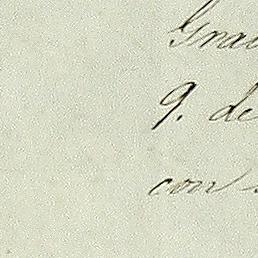 Gra
9. de
con